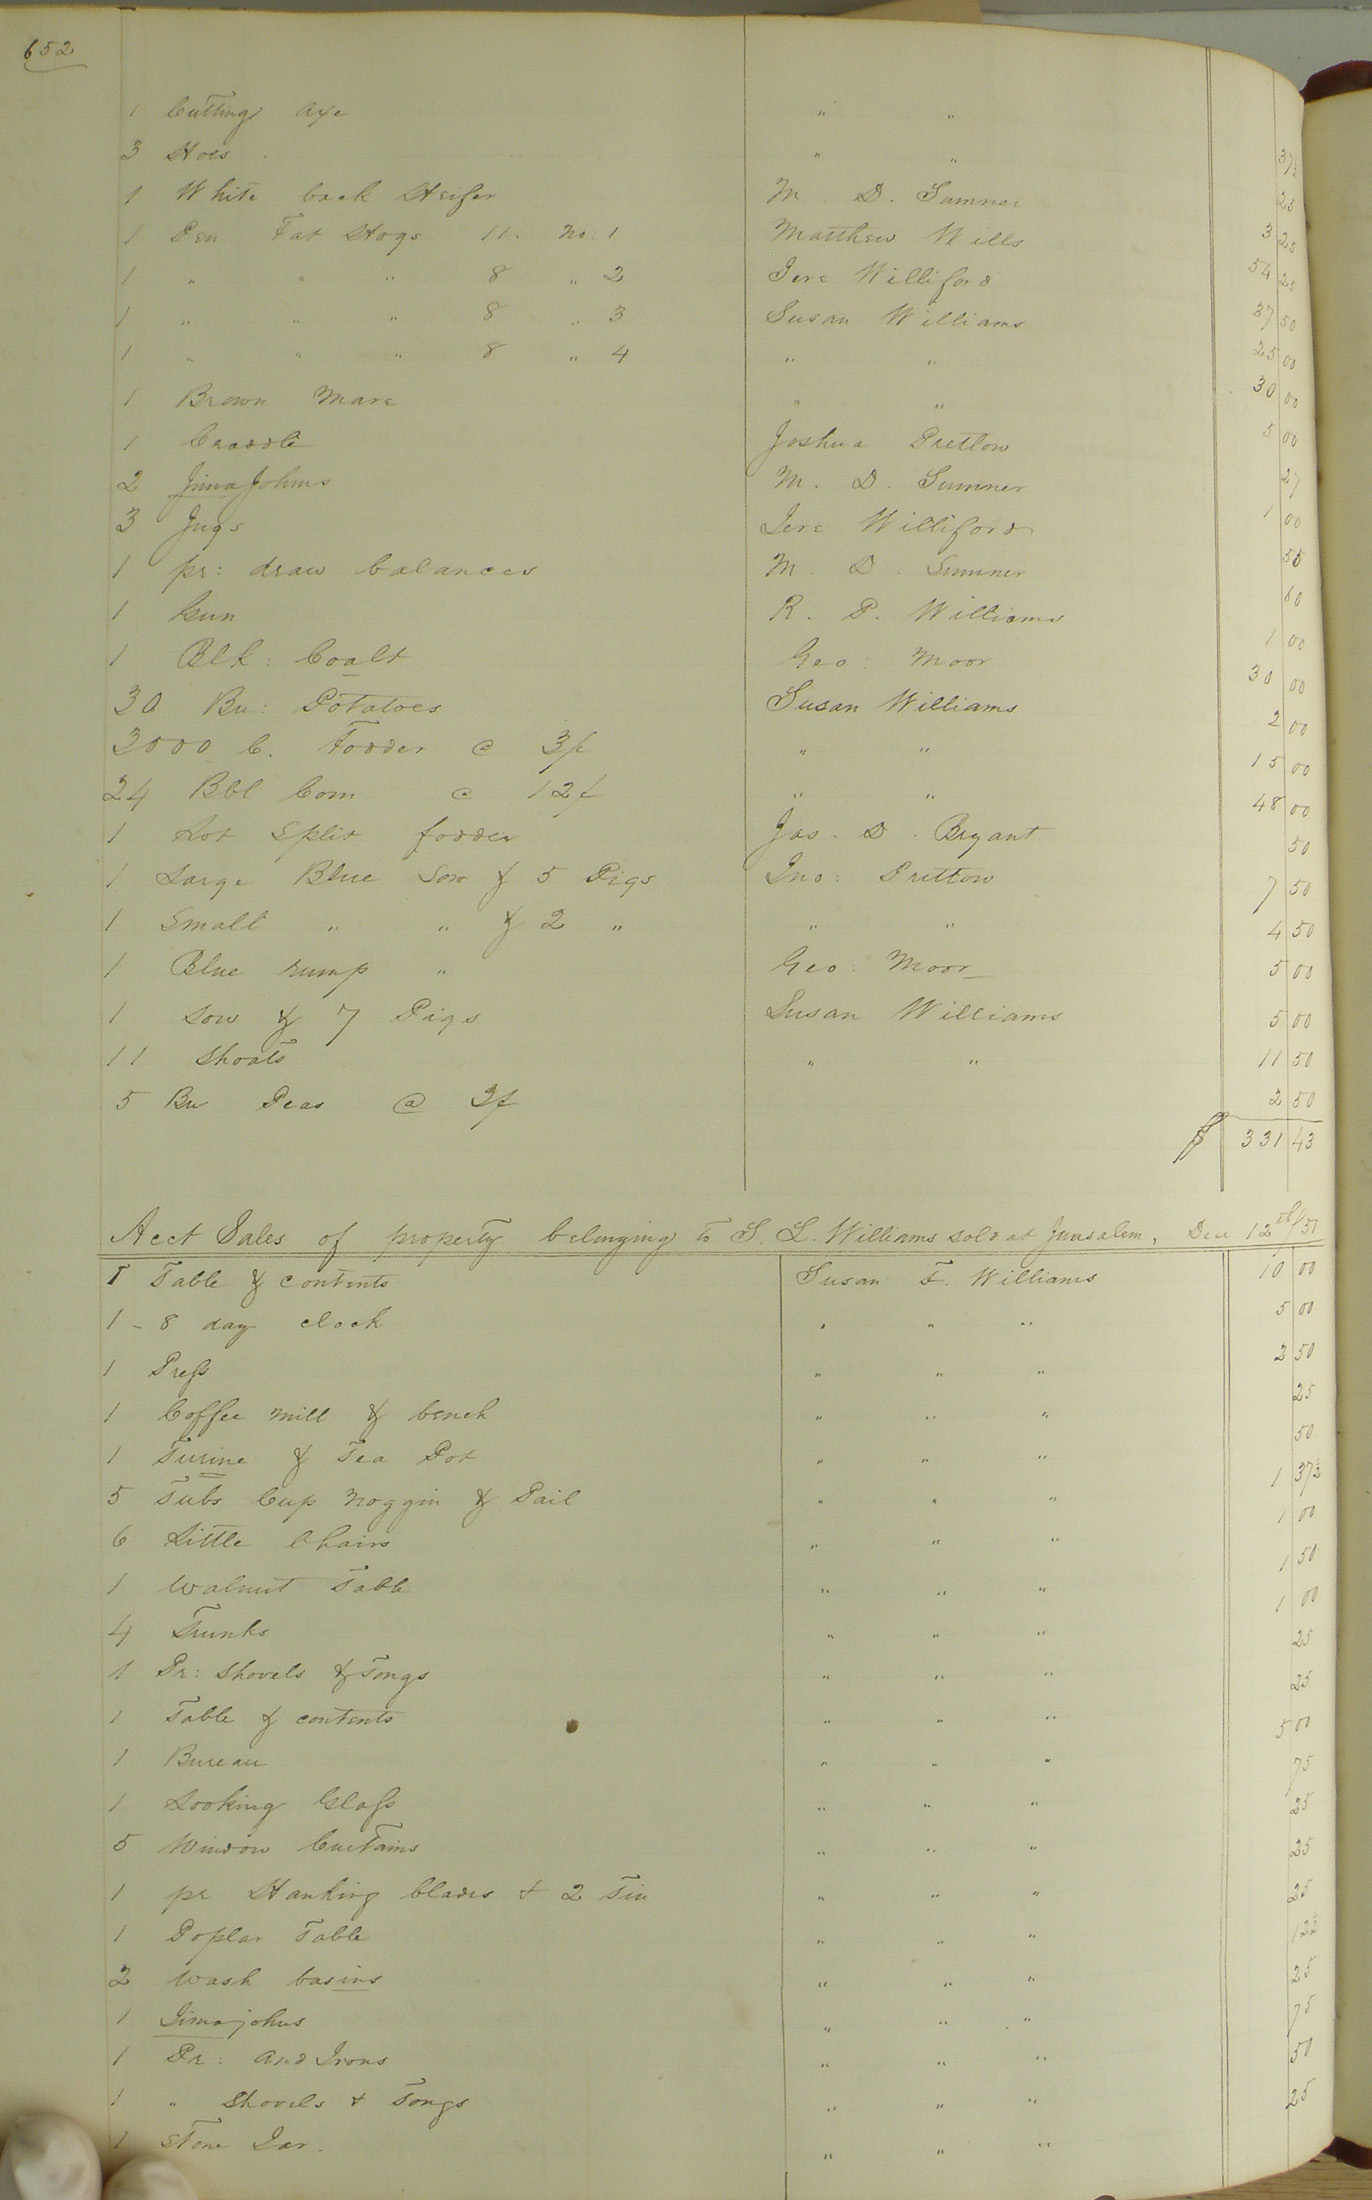 652
1 Cutting Axe " " 37½
3 Hoes " " 25
1 White back Heifer M. D. Sumner 3 25
1 Pen Fat Hogs 11. No: 1 Matthew Wills 54 25
1 " " " 8 " 2 Jere Williford 37 50
1 " " " 8 " 3 Susan Williams 25 00
1 " " " 8 " 4 " " 30 00
1 Brown Mare " " 5 00
1 Craddle Joshua Pretlow 27
2 Jima Johns M. D. Sumner 1 00
3 Jugs Jere Williford 55
1 pr: draw balances M. D. Sumner 60
1 Gun R. P. Williams 1 00
1 Blk: Coalt Geo: Moor 30 00
30 Bu: Potatoes Susan Williams 2 00
3000 lb. Fodder @ 3/ " " 15 00
24 Bbl Corn @ 12/ " " 48 00
1 Lot Split fodder Jas. D. Bryant 50
1 Large Blue Sow & 5 Pigs Jno: Prettow 7 50
1 Small " " & 2 " " " 4 50
1 Blue rump " Geo: Moor 5 00
1 Sow & 7 Pigs Susan Williams 5 00
11 Shoats " " 11 50
5 Bu Peas @ 3/ 2 50
$ 331 43
Acct Sales of property belonging to S. L. Williams sold at Jerusalem, Dec 12th/51
1 Table & contents Susan F. Williams 10 00
1 - 8 day clock " " " 5 00
1 Press " " " 2 50
1 Coffee mill & bench " " " 25
1 Turine & Tea Pot " " " 50
5 Tubs Cup Noggin & Pail " " " 1 37½
6 Little Chairs " " " 1 00
1 Walnut Table " " " 1 50
4 Trunks " " " 1 00
1 Pr: Shovels & Tongs " " " 25
1 Table & contents " " " 25
1 Bureau " " " 5 00
1 Looking Glass " " " 75
5 Window Curtains " " " 25
1 pr Hanking blades + 2 Tin " " " 25
1 Poplar Table " " " 25
2 Wash basins " " " 12½
1 Jimajohns " " " 25
1 Pr: And Irons " " " 75
1 " Shovels + Tongs " " " 50
1 Stone Jar. " " " 25